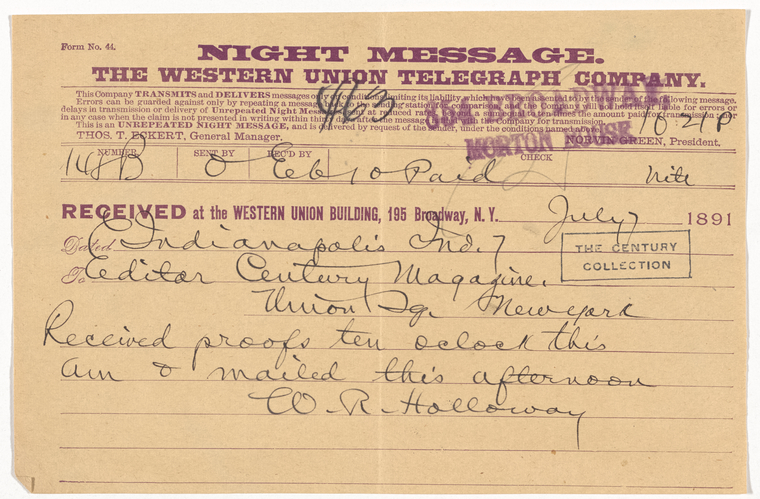 Form No. 44.
NIGHT MESSAGE.
THE WESTERN UNION TELEGRAPH COMPANY.
This Company TRANSMITS and DELIVERS messages only on conditions limiting its liability, which have been assented to by the sender of the following message.
Errors can be guarded against only by repeating a message back to the sending station for comparison, and the Company will not hold itself liable for errors or
delays in transmission or delivery of Unrepeated Night Messages, sent at reduced rates, beyond a sum equal to ten times the amount paid for transmission; nor
in any case when the claim is not presented in writing within thirty days after the message is filed with the Company for transmission.
This is an UNREPEATED NIGHT MESSAGE, and is delivered by request of the sender, under the conditions named above.
THOS. T. ECKERT, General Manager. NORVIN GREEN, President.
463
BROADWAY
MORTON HOUSE
10 21 P
NUMBER SENT BY REC'D BY CHECK
148B O Eb 10 Paid Nite
RECEIVED at the WESTERN UNION BUILDING, 195 Broadway, N. Y. July 7 1891
Dated Indianapolis Ind. 7
THE CENTURY
COLLECTION
To Editor Century Magazine.
Union Sq. New York
Received proofs ten oclock this
am & mailed this afternoon
W. R. Holloway